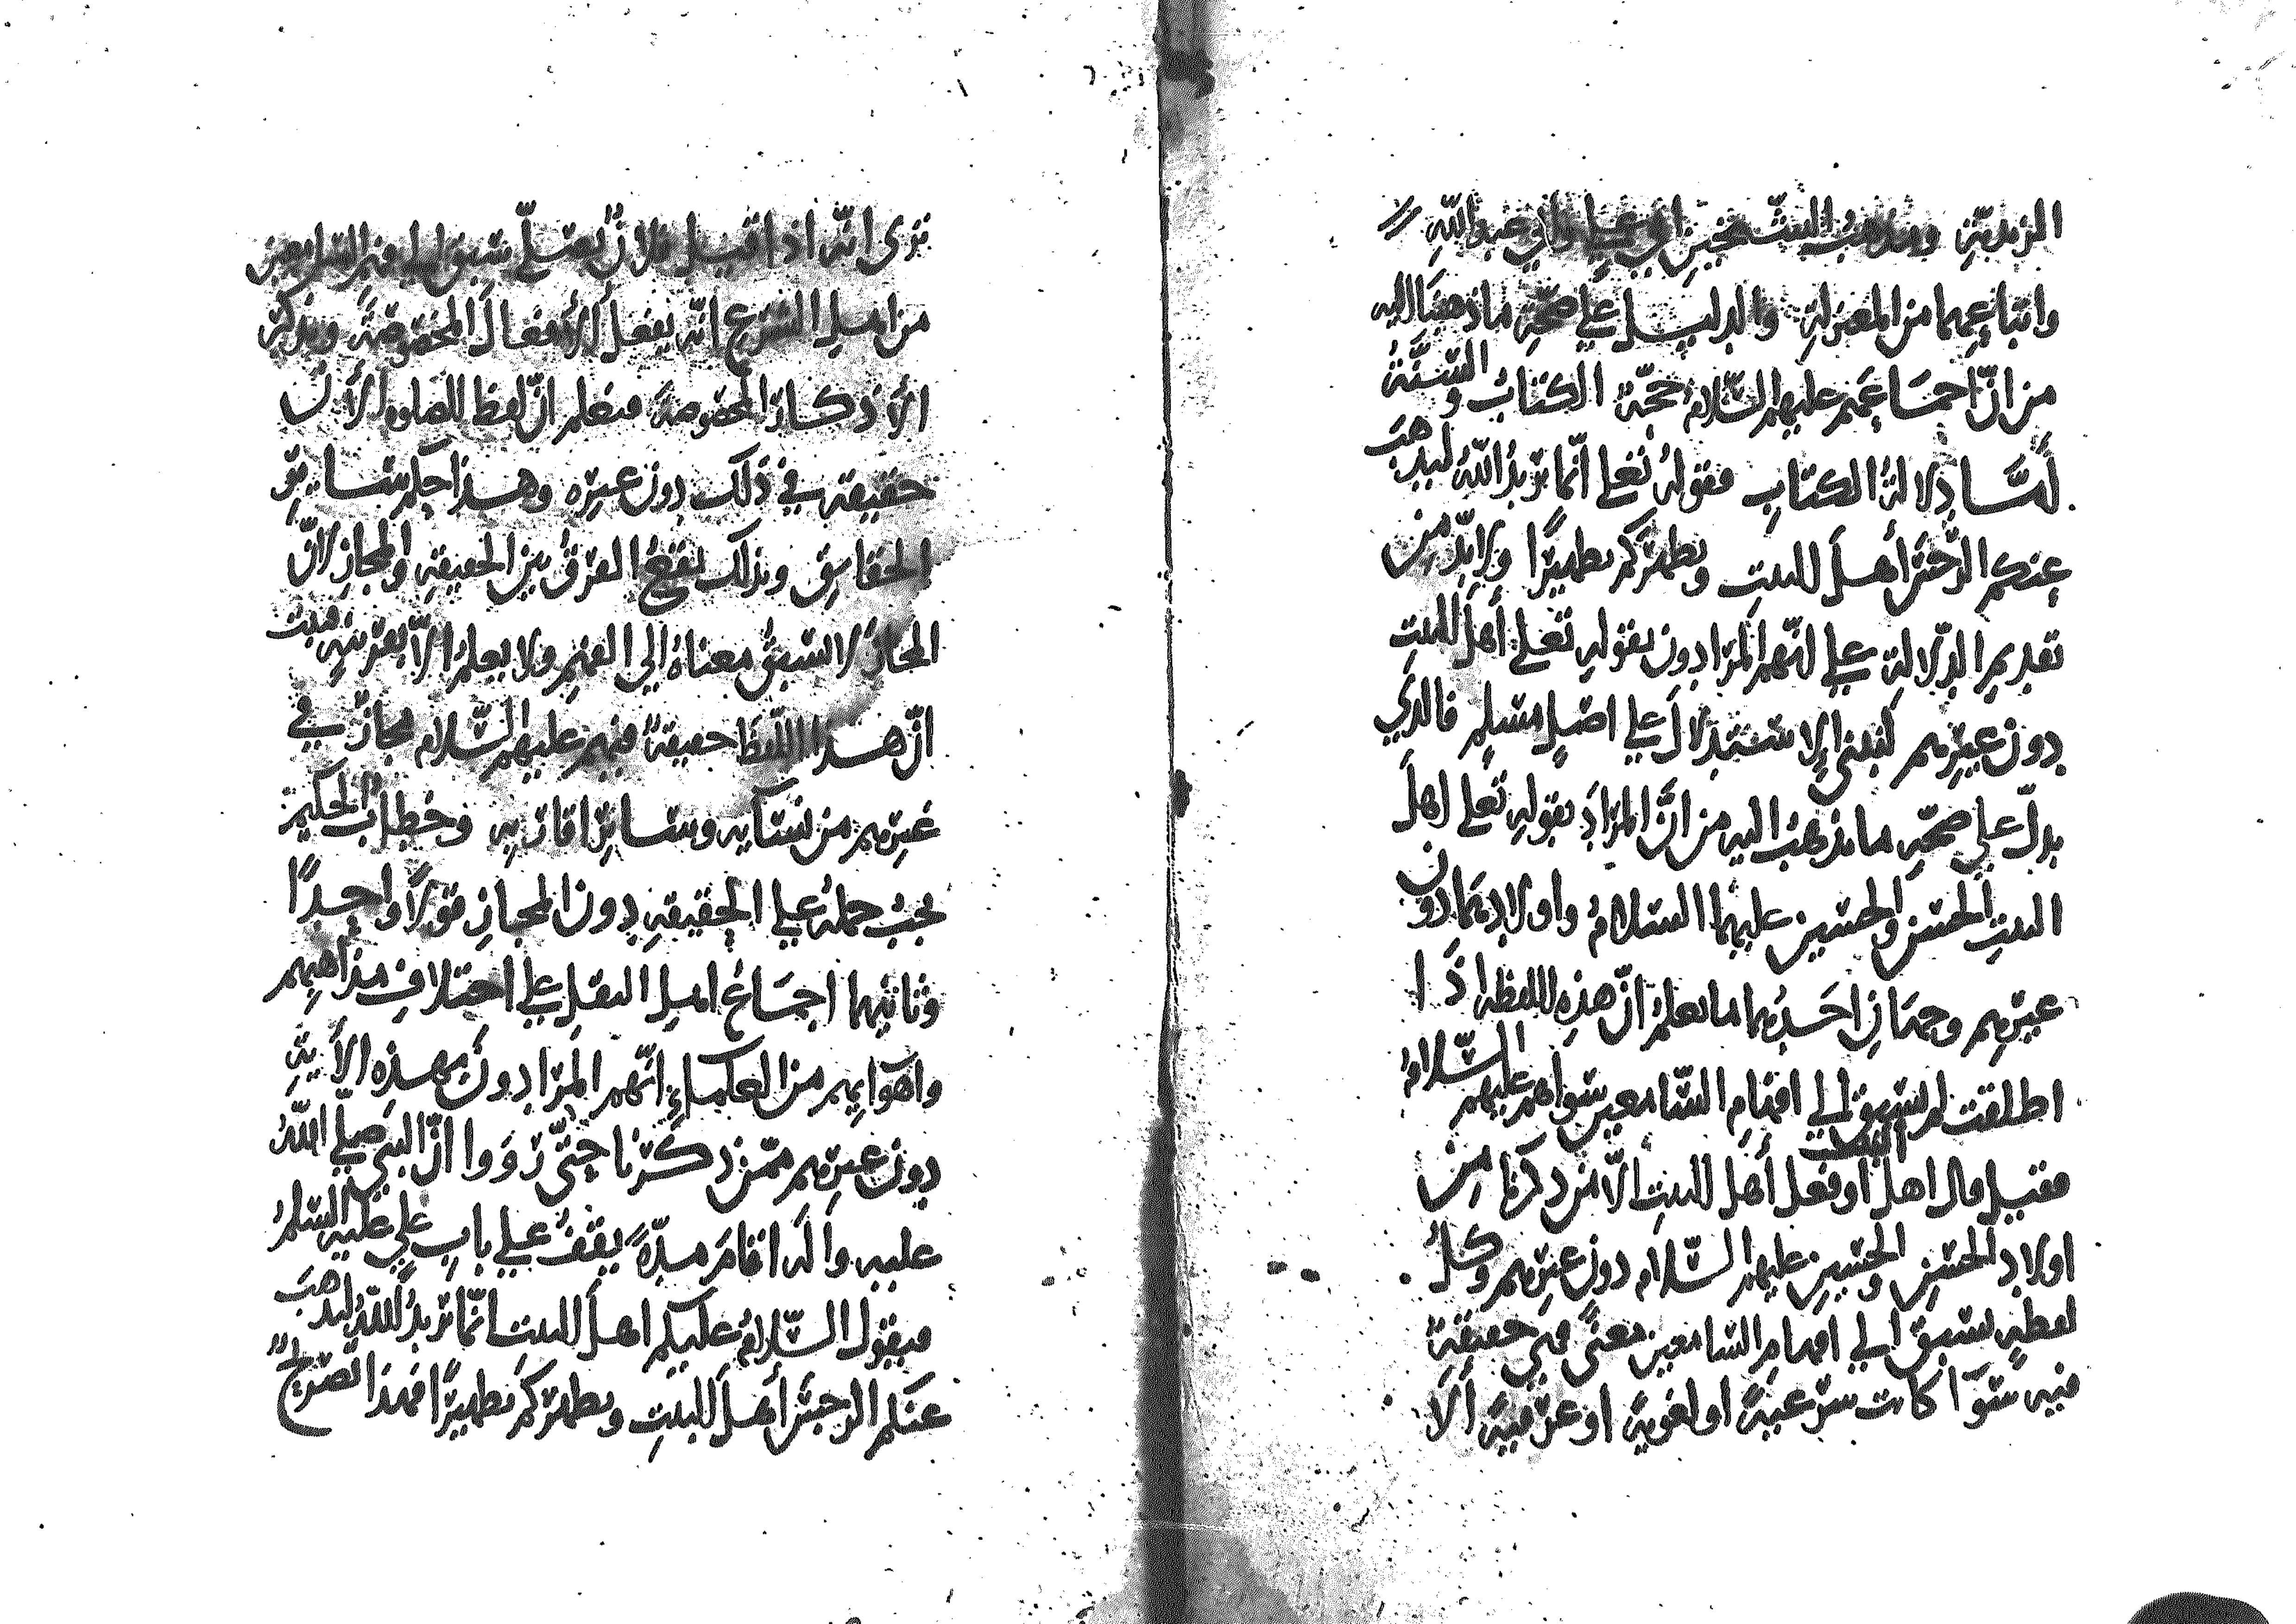 الزيدية ومذهب الشيخين ابي علي وابي عبدالله
واتباعهما من المعتزلة والدليل على صحة ما ذهبنا اليه
من ان اجماعهم عليهم السلام حجة الكتاب والسنة
اما دلالة الكتاب فقوله تعلى انما يريد الله ليذهب
عنكم الرجس أهل البيت ويطهركم تطهيرا ولا بد من
تقديم الدلالة على انهم المرادون بقوله تعلى أهل البيت
دون غيرهم لينبني الاستدلال على اصل مسلم فالذي
يدل على صحة ما نذهب اليه من ان المراد بقوله تعلى اهل
البيت الحسن والحسين عليهما السلام واولادهما دون
غيرهم وجهان احدهما ما نعلم ان هذه اللفظة اذا
اطلقت لم يسبق الى افهام السامعين سواهم عليهم السلام
فقيل قال اهل البيت او فعل أهل البيت الا من ذكرنا من
اولاد الحسن والحسين عليهم السلام دون غيرهم وكل
لفظة يسبق الى افهام السامعين معنى فهي حقيقة
فيه سوآ كانت شرعية او لغوية او عرفية ألا
ترى انه اذا قيل فلان يصلي سبق الى فهم السامعين
من اهل الشرع انه يفعل الأفعال المخصوصة ويذكر
الأذكار المخصوصة فنعلم ان لفظ الصلوة الأن
حقيقة في ذلك دون غيره وهذا حكم سائر
الحقائق وبذلك يقع الفرق بين الحقيقة والمجاز لان
المجاز لا يسبق معناه الى الفهم ولا يعلم الا بقرينة فثبت
ان هذا اللفظ حقيقة فيهم عليهم السلام مجاز في
غيرهم من نسائه وسائر اقاربه وخطاب الحكيم
يجب حمله على الحقيقة دون المجاز قولا واحدا
وثانيهما اجماع اهل النقل على اختلاف مذاهبهم
واهوائهم من العلماء انهم المرادون بهذه الأية
دون غيرهم ممن ذكرنا حتى رووا ان النبي صلى الله
عليه وآله اقام مدة يقف على باب علي عليه السلم
فيقول السلام عليكم اهل البيت انما يريد الله ليذهب
عنكم الرجس أهل البيت ويطهركم تطهيرا فهذا تصريح